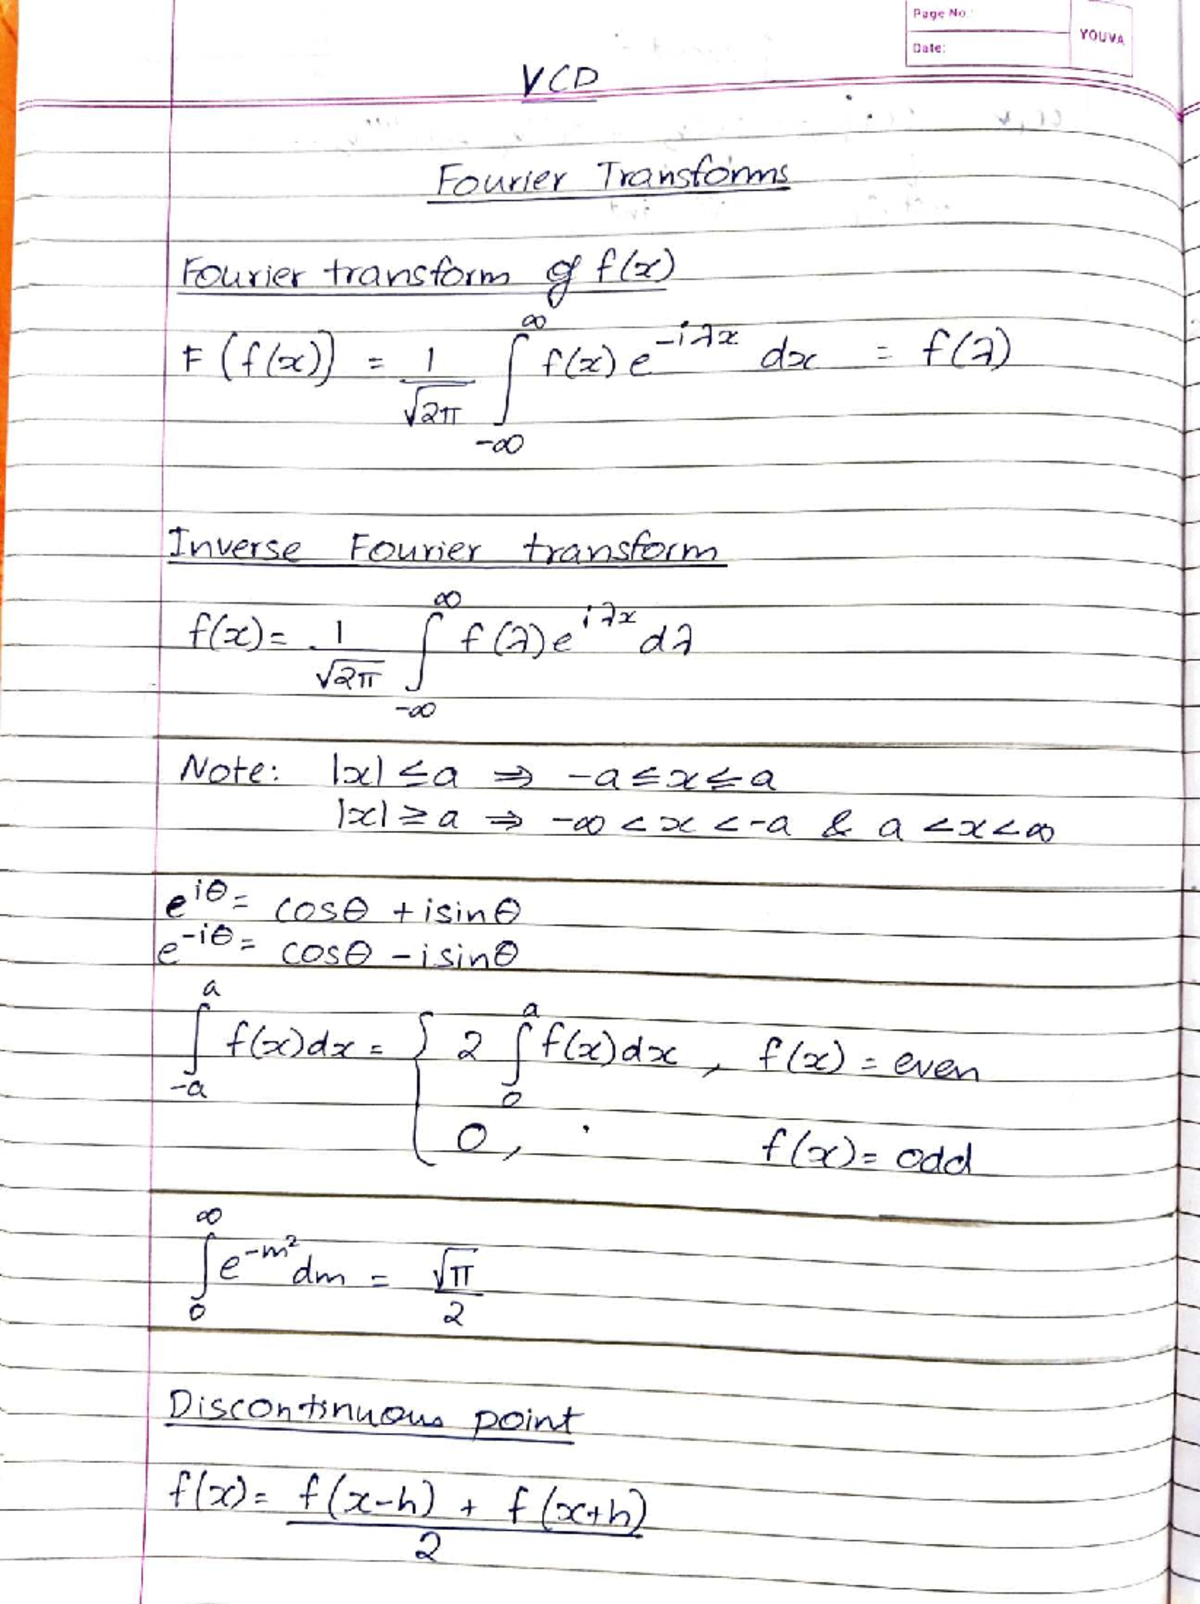 Page No:
YOUVA
Date:
VCD
Fourier Transforms
Fourier transform of f(x)
F(f(x)) = 1/√2π ∫_{-∞}^{∞} f(x) e^{-iλx} dx = f(λ)
Inverse Fourier transform
f(x) = 1/√2π ∫_{-∞}^{∞} f(λ) e^{iλx} dλ
Note: |x| ≤ a ⇒ -a ≤ x ≤ a
|x| ≥ a ⇒ -∞ < x < -a & a < x < ∞
e^{iθ} = cosθ + isinθ
e^{-iθ} = cosθ - isinθ
∫_{-a}^{a} f(x)dx = { 2 ∫_{0}^{a} f(x)dx , f(x) = even
0, f(x) = odd
∫_{0}^{∞} e^{-m²} dm = √π/2
Discontinuous point
f(x) = f(x-h) + f(x+h)/2